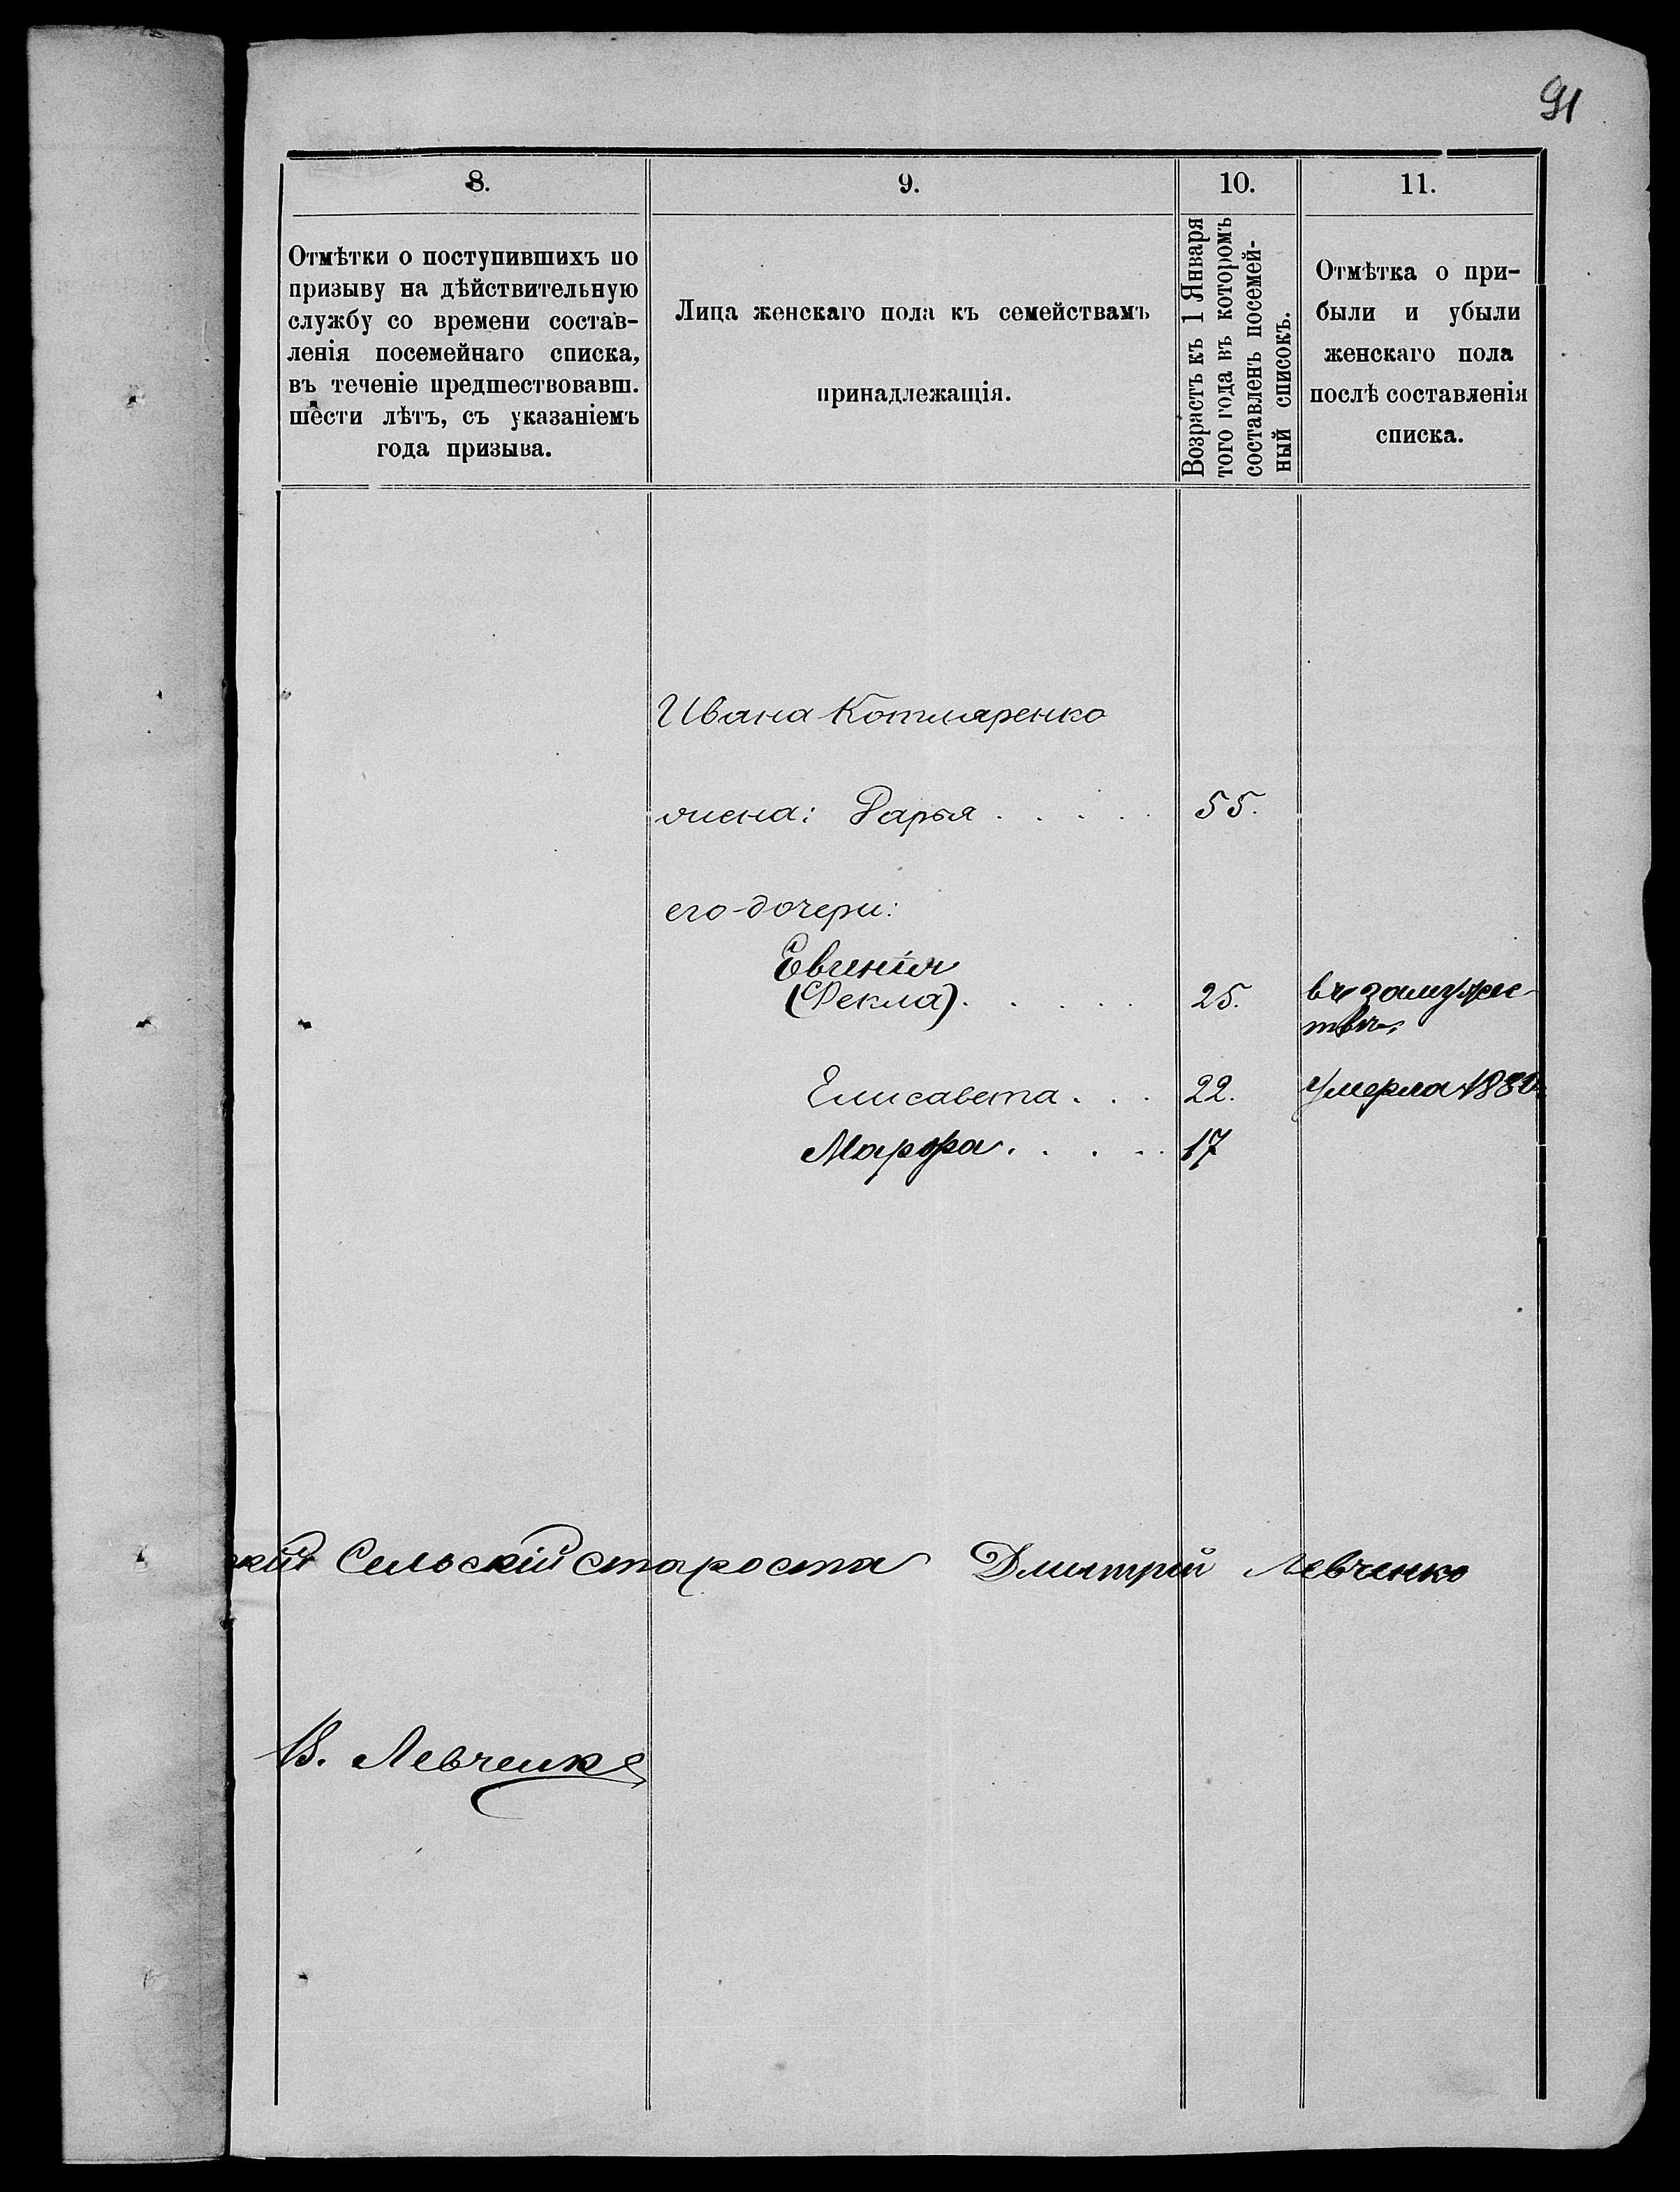 91
8.
9.
10.
11.
Отмѣтки о поступившихъ по
призыву на дѣйствительную
службу со времени состав-
ленія посемейнаго списка,
въ теченіе предшествовавш.
шести лѣтъ, съ указаніемъ
года призыва.
Лица женскаго пола къ семействамъ
принадлежащія.
Возрастъ къ 1 Января
того года въ которомъ
составленъ посемей-
ный списокъ.
Отмѣтка о при-
были и убыли
женскаго пола
послѣ составленія
списка.
Ивана Котляренко
жена: Дарья . . . . . 55.
его дочери:
Евгенія
(Фекла) . . . . . 25. въ замужес-
твѣ.
Елисавета . . . 22. Умерла
Марфа . . . . . 17
Сельскій староста Дмитрій Левченко
В. Левченко